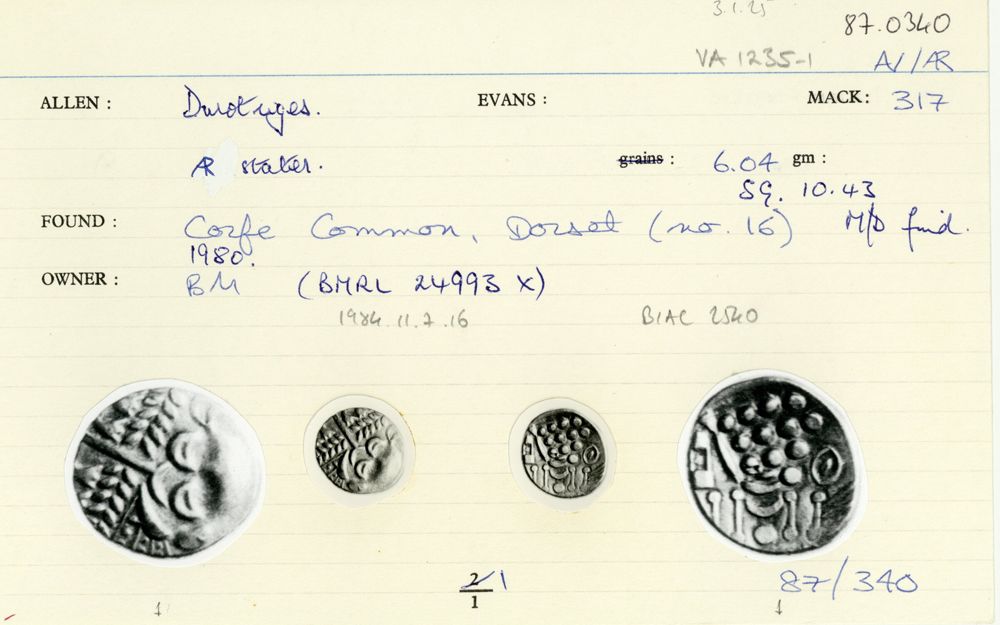 3.1.25
87.0340
VA 1235-1 AV/AR
ALLEN : Durotriges. EVANS : MACK: 317
AR stater. grains : 6.04 gm :
SG. 10.43
FOUND : Corfe Common, Dorset (no. 16) M/D find.
1980.
OWNER : BM (BMRL 24993 X)
1984.11.7.16 BIAC 2540
2/1 1
87/340
1 1